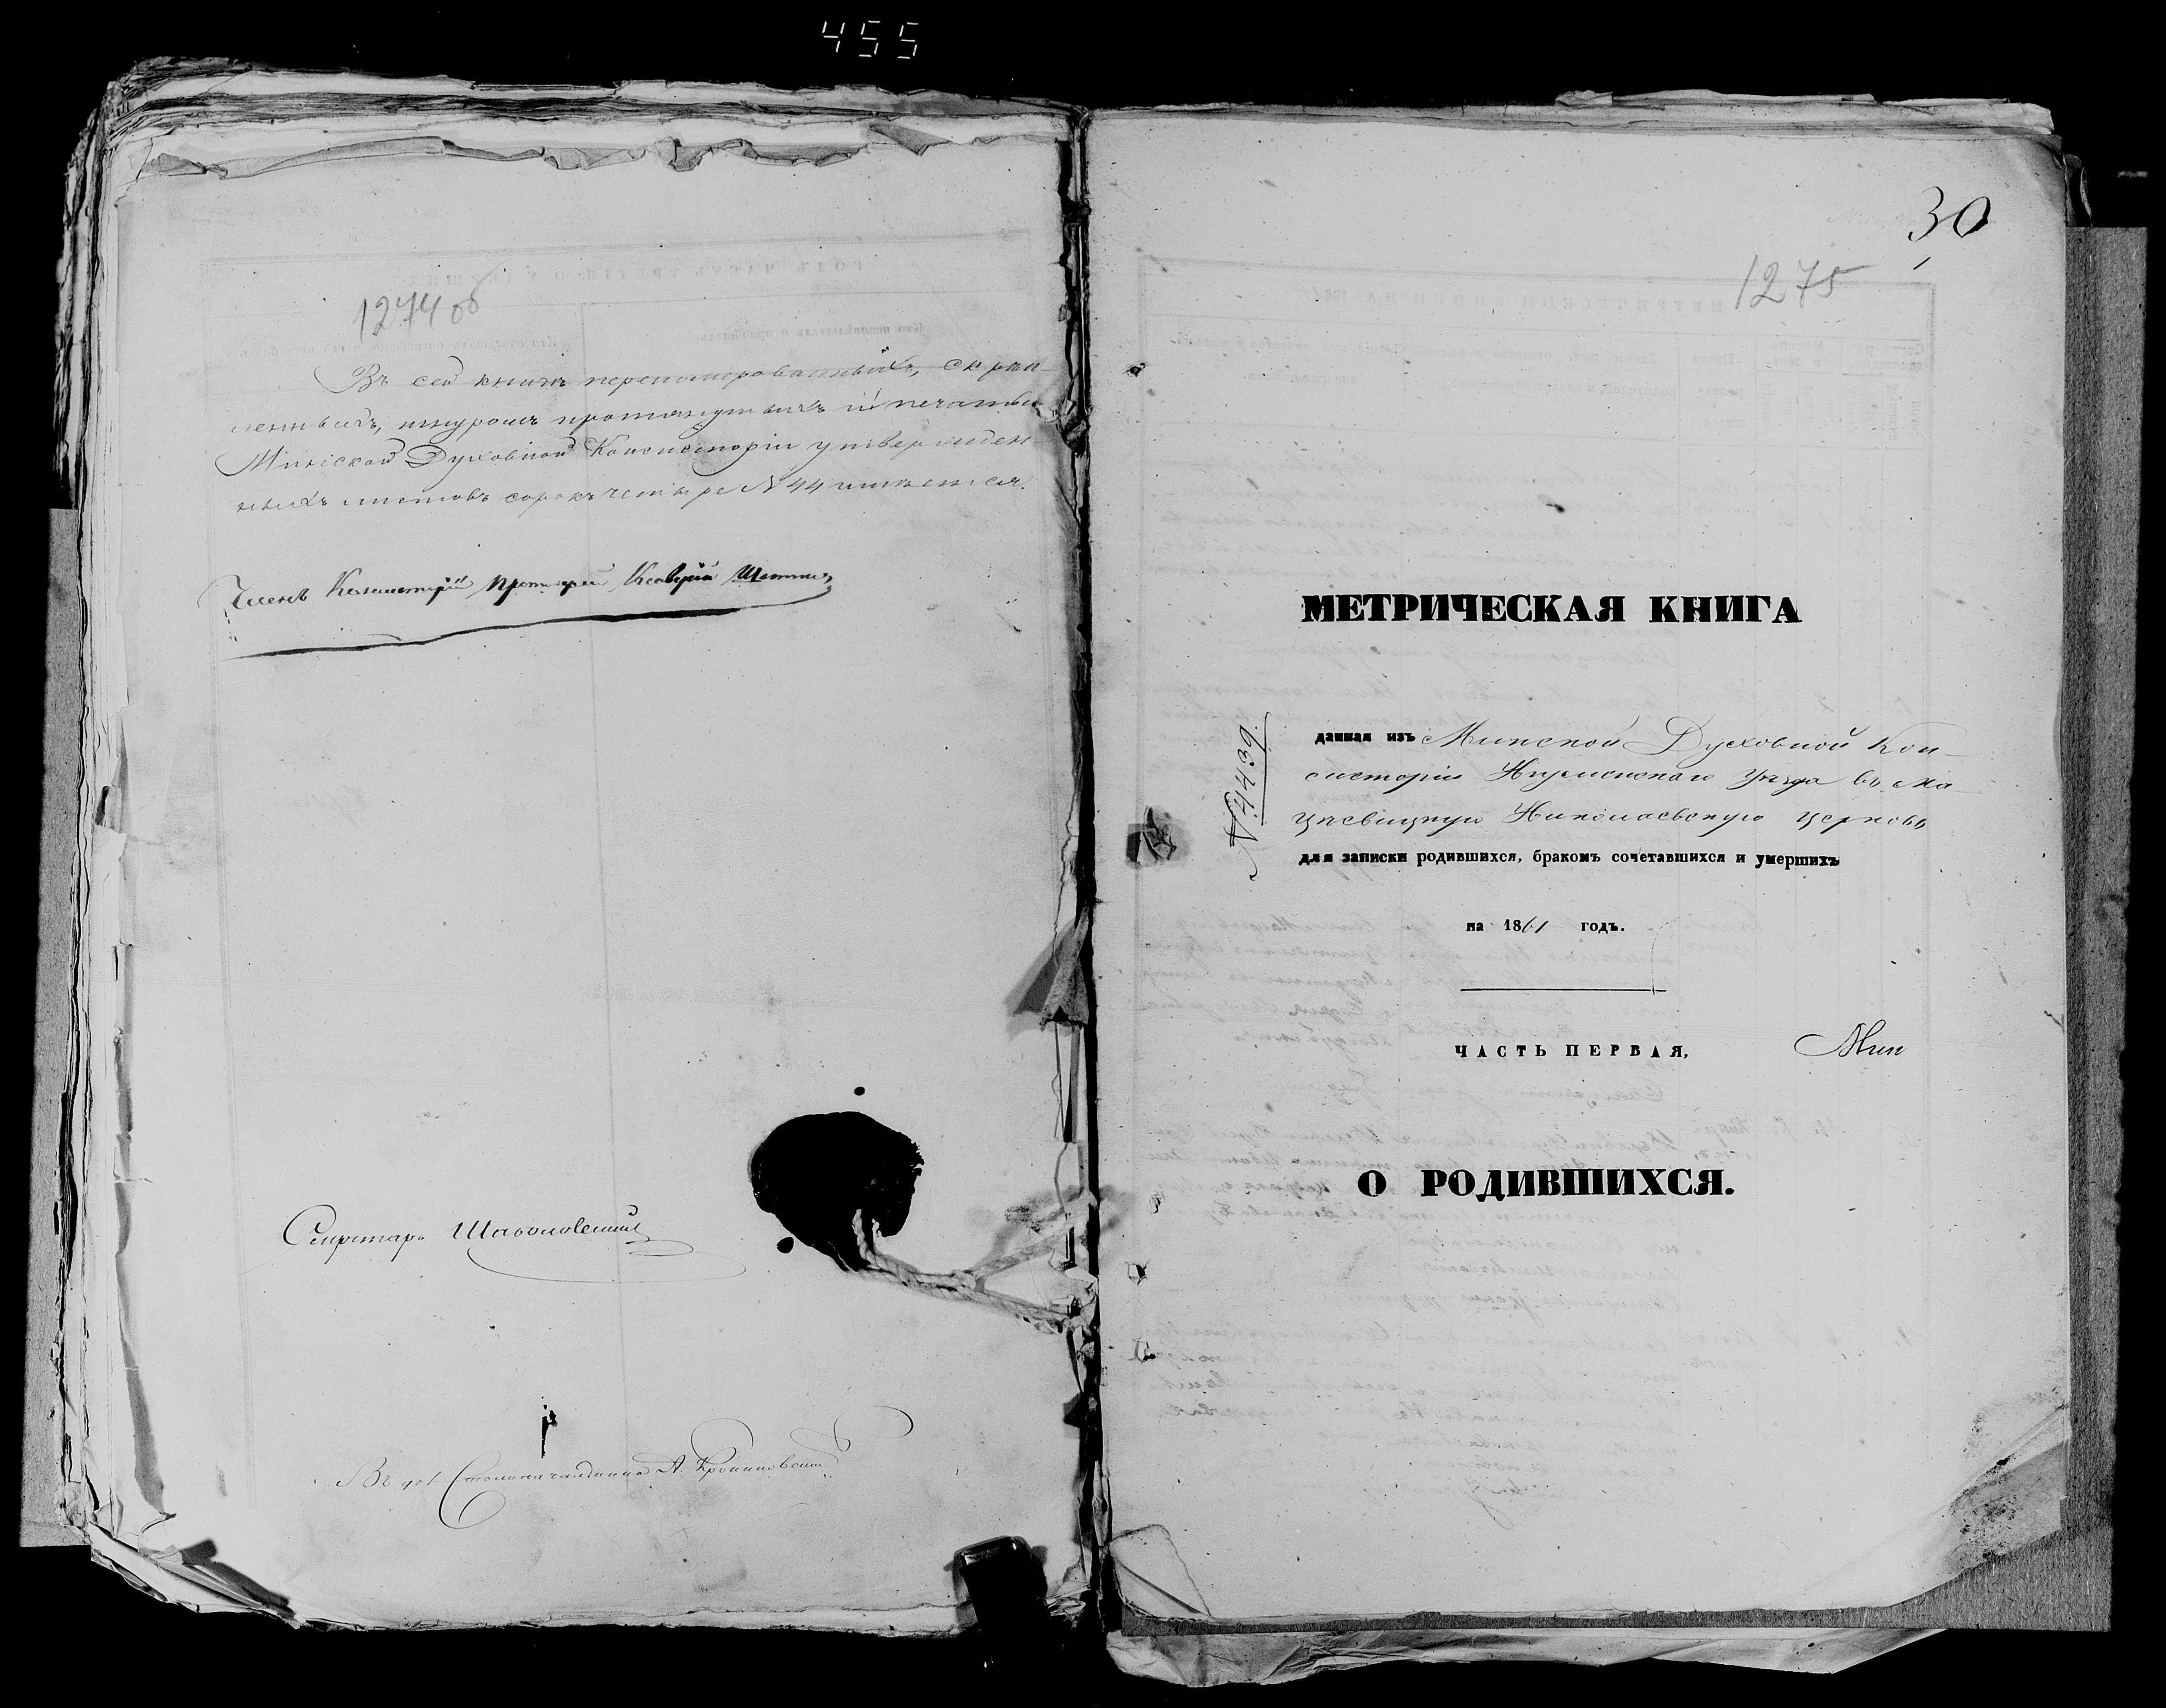 455
1274 об
Въ сей книгѣ перенумерованныхъ, скрѣп
ленныхъ, шнуромъ протянутыхъ и печатью
Минской Духовной Консисторіи утвержден-
ныхъ листовъ сорокъ четыре № 44 имѣется.
Членъ Консисторіи Протоіерей Ксаверій
Секретарь
Въ Столоначальника А.
30
1275
МЕТРИЧЕСКАЯ КНИГА
№ 4439.
данная изъ Минской Духовной Кон-
систоріи Игуменскаго Уѣзда въ Ма-
цѣевицкую Николаевскую церковь
для записки родившихся, бракомъ сочетавшихся и умершихъ
на 1861 годъ.
ЧАСТЬ ПЕРВАЯ,
Мин
О РОДИВШИХСЯ.